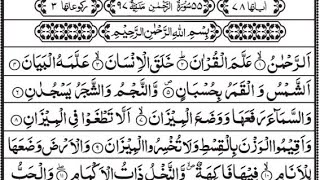 اٰیاتہا ۷۸ ۵۵ سُوْرَةُ الرَّحْمٰنِ مَدَنِیَّةٌ ۹۷ رکوعاتہا ۳
بِسْمِ اللّٰهِ الرَّحْمٰنِ الرَّحِیْمِ
اَلرَّحْمٰنُ ۙ۱ عَلَّمَ الْقُرْاٰنَ ؕ۲ خَلَقَ الْاِنْسَانَ ۙ۳ عَلَّمَهُ الْبَیَانَ ۴
اَلشَّمْسُ وَ الْقَمَرُ بِحُسْبَانٍ ۪۵ وَّ النَّجْمُ وَ الشَّجَرُ یَسْجُدٰنِ ۶
وَ السَّمَآءَ رَفَعَهَا وَ وَضَعَ الْمِیْزَانَ ۙ۷ اَلَّا تَطْغَوْا فِی الْمِیْزَانِ ۸
وَ اَقِیْمُوا الْوَزْنَ بِالْقِسْطِ وَ لَا تُخْسِرُوا الْمِیْزَانَ ۹ وَ الْاَرْضَ وَضَعَهَا
لِلْاَنَامِ ۙ۱۰ فِیْهَا فَاكِهَةٌ ۪ۙ وَّ النَّخْلُ ذَاتُ الْاَكْمَامِ ۖ۱۱ وَ الْحَبُّ